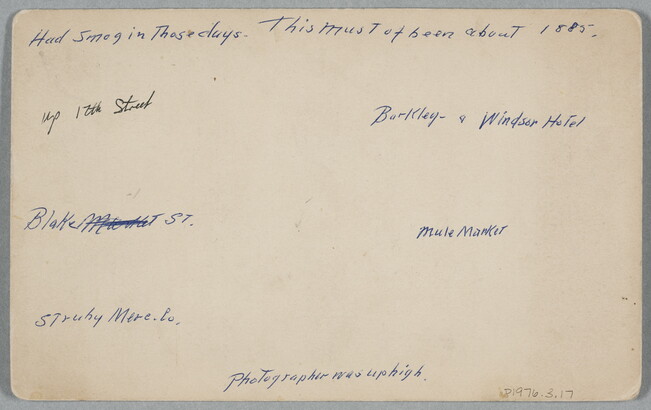 Had Smog in Those days. This Must of been about 1885.
up 17th Street
Barkley - & Windsor Hotel
Blake Market ST.
Mule Market
Struby Merc. Co.
Photographer was up high.
P1976.3.17